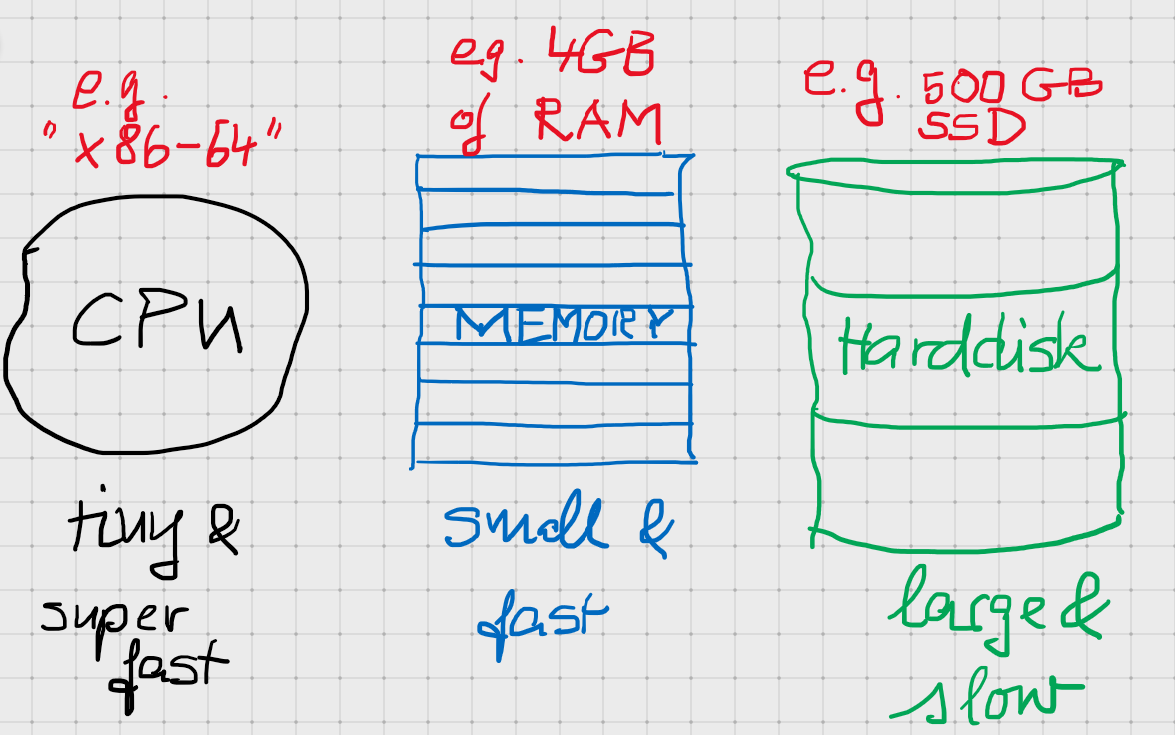 e.g.
"x86-64"
CPU
tiny &
super
fast
e.g. 4GB
of RAM
MEMORY
small &
fast
e.g. 500 GB
SSD
Harddisk
large &
slow